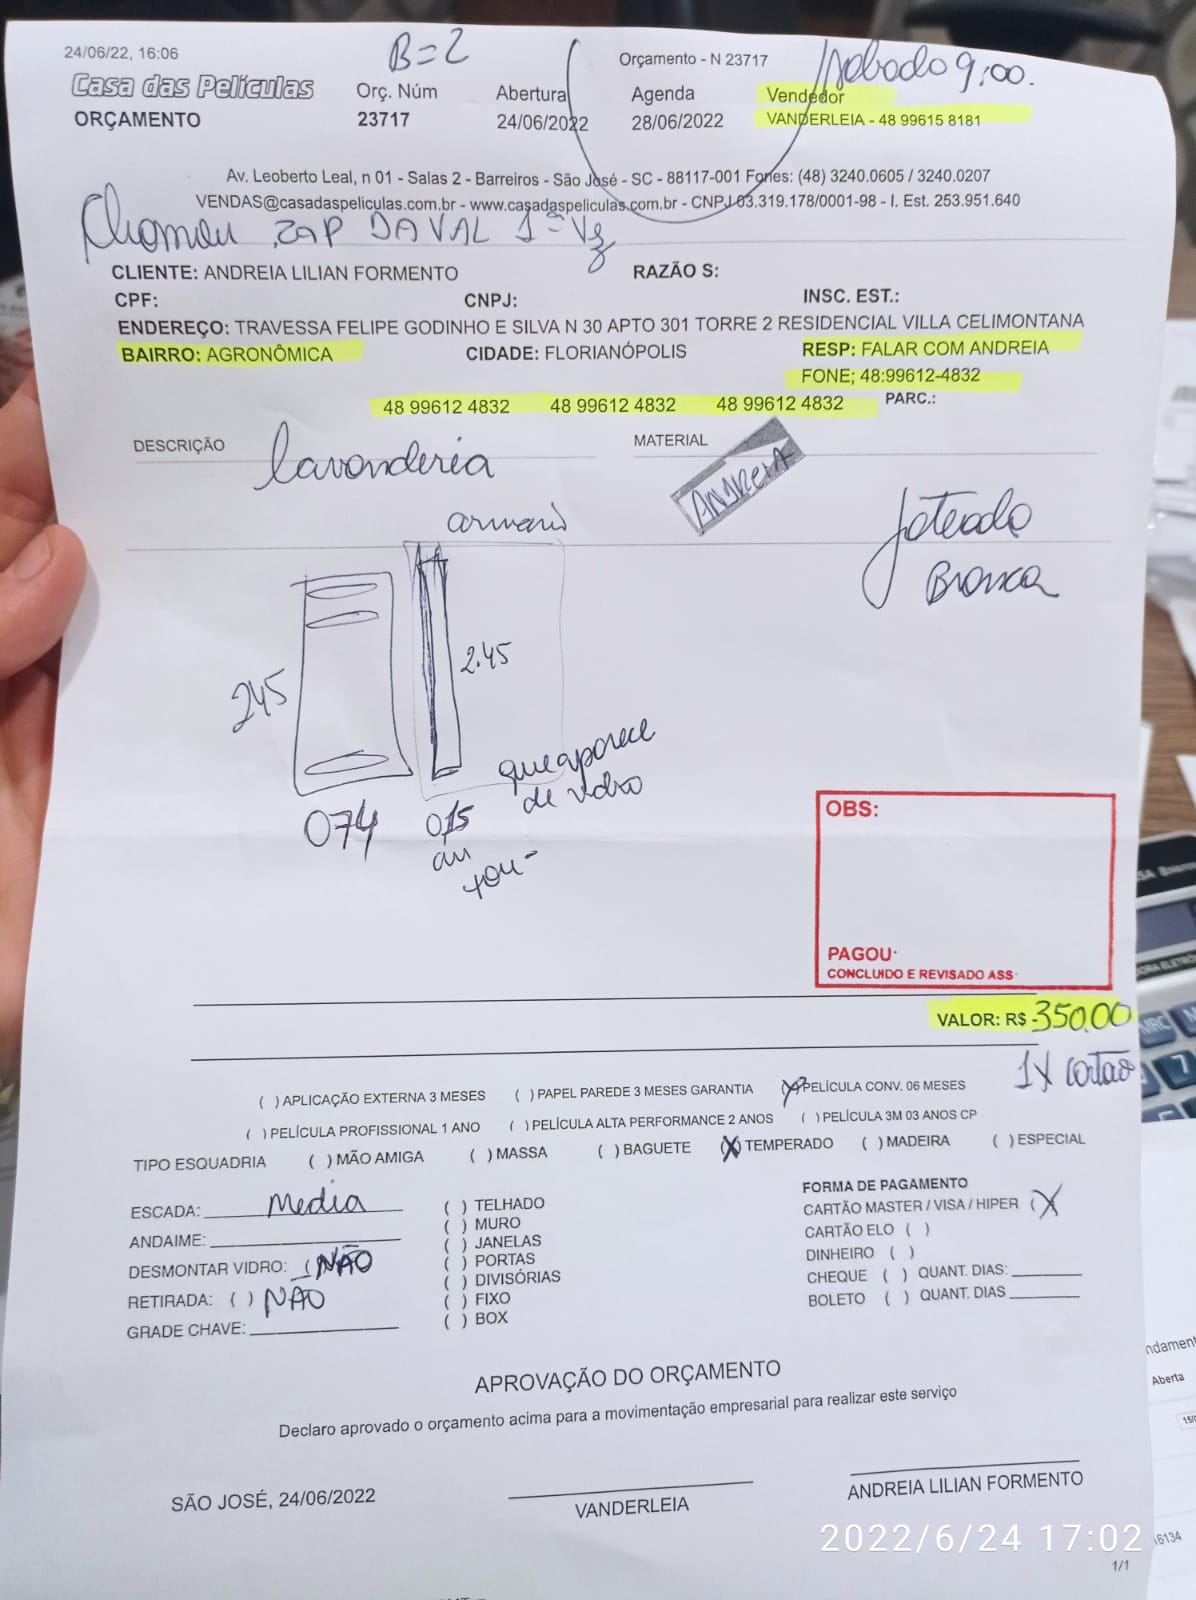 24/06/22, 16:06
B=2
Orçamento - N 23717
sabado 9:00.
Casa das Películas
Orç. Núm
Abertura
Agenda
Vendedor
ORÇAMENTO
23717
24/06/2022
28/06/2022
VANDERLEIA - 48 99615 8181
Av. Leoberto Leal, n 01 - Salas 2 - Barreiros - São José - SC - 88117-001 Fones: (48) 3240.0605 / 3240.0207
VENDAS@casadaspeliculas.com.br - www.casadaspeliculas.com.br - CNPJ 03.319.178/0001-98 - I. Est. 253.951.640
Chamou ZAP DAVAL 1ª Vz
CLIENTE: ANDREIA LILIAN FORMENTO
RAZÃO S:
CPF:
CNPJ:
INSC. EST.:
ENDEREÇO: TRAVESSA FELIPE GODINHO E SILVA N 30 APTO 301 TORRE 2 RESIDENCIAL VILLA CELIMONTANA
BAIRRO: AGRONÔMICA
CIDADE: FLORIANÓPOLIS
RESP: FALAR COM ANDREIA
FONE; 48:99612-4832
48 99612 4832 48 99612 4832 48 99612 4832
PARC.:
DESCRIÇÃO
lavanderia
MATERIAL
ANDREIA
armario
Jateado
Branca
245
2.45
que aparece
de vidro
074
015
OBS:
PAGOU:
CONCLUIDO E REVISADO ASS:
VALOR: R$ 350,00
1X Cartão
( ) APLICAÇÃO EXTERNA 3 MESES ( ) PAPEL PAREDE 3 MESES GARANTIA (X) PELÍCULA CONV. 06 MESES
( ) PELÍCULA PROFISSIONAL 1 ANO ( ) PELÍCULA ALTA PERFORMANCE 2 ANOS ( ) PELÍCULA 3M 03 ANOS CP
TIPO ESQUADRIA ( ) MÃO AMIGA ( ) MASSA ( ) BAGUETE (X) TEMPERADO ( ) MADEIRA ( ) ESPECIAL
ESCADA: Media
ANDAIME:
DESMONTAR VIDRO: ( NÃO
RETIRADA: ( ) NÃO
GRADE CHAVE:
( ) TELHADO
( ) MURO
( ) JANELAS
( ) PORTAS
( ) DIVISÓRIAS
( ) FIXO
( ) BOX
FORMA DE PAGAMENTO
CARTÃO MASTER / VISA / HIPER (X)
CARTÃO ELO ( )
DINHEIRO ( )
CHEQUE ( ) QUANT. DIAS:
BOLETO ( ) QUANT. DIAS
APROVAÇÃO DO ORÇAMENTO
Declaro aprovado o orçamento acima para a movimentação empresarial para realizar este serviço
SÃO JOSÉ, 24/06/2022
VANDERLEIA
ANDREIA LILIAN FORMENTO
2022/6/24 17:02
1/1
Aberta
MRC
7